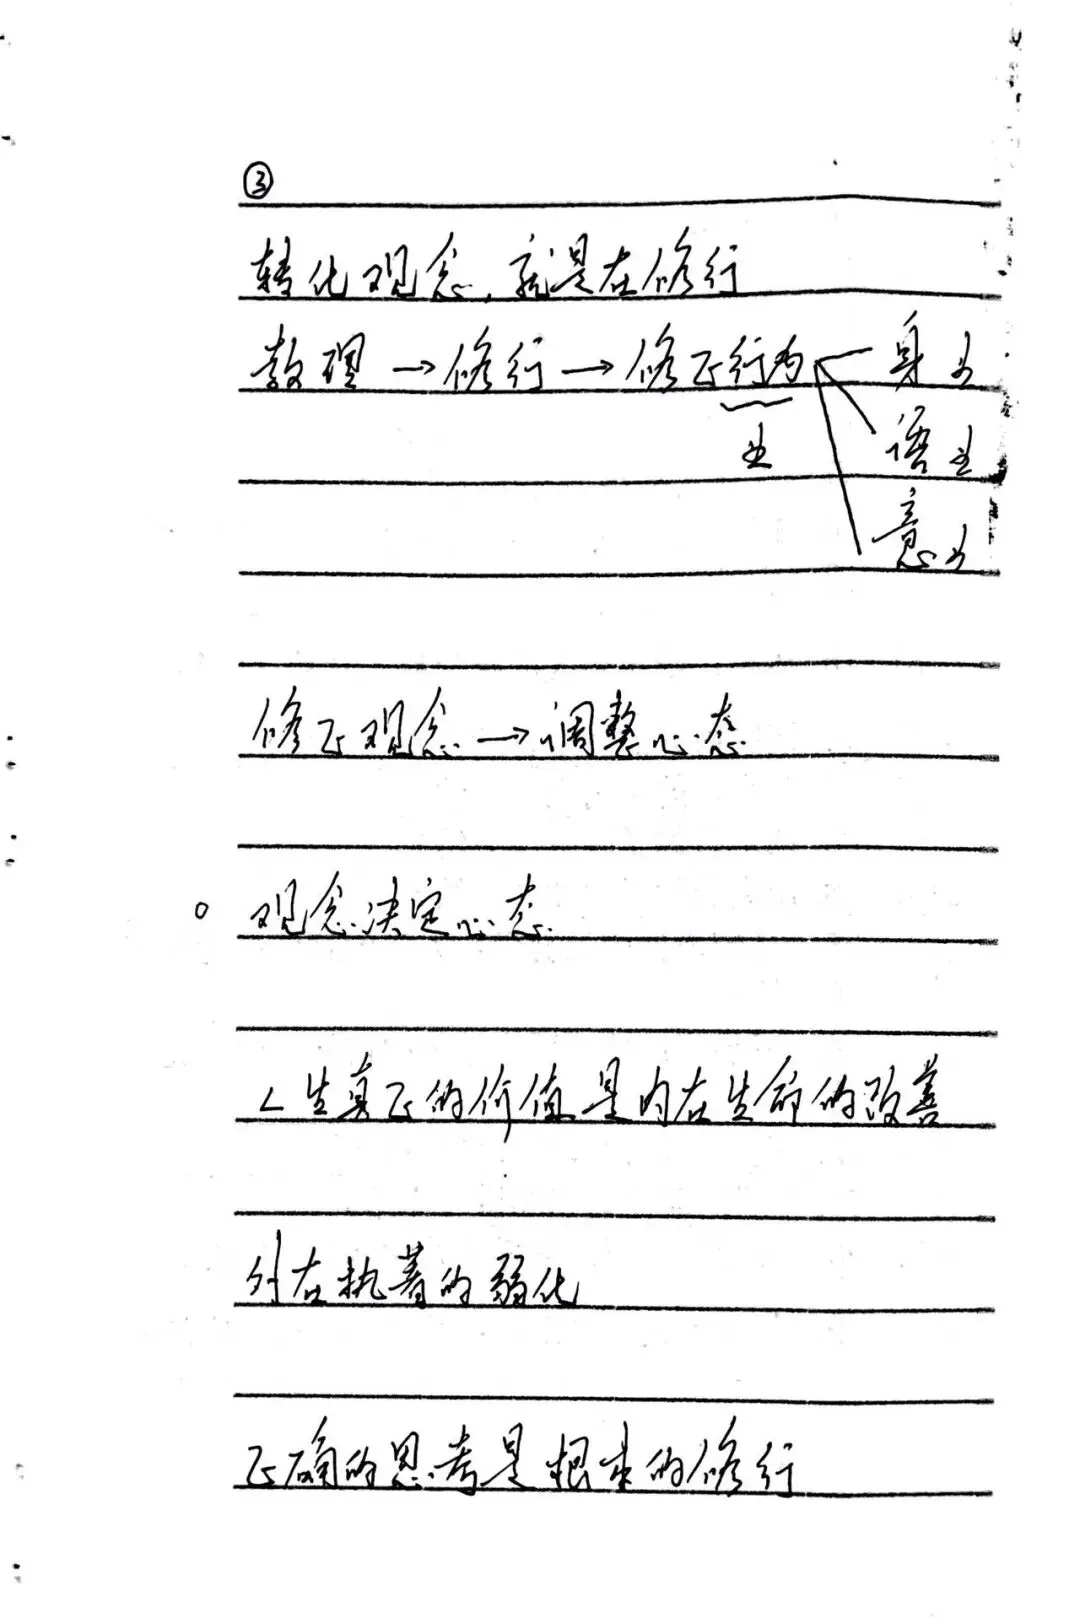 ③
转化观念,就是在修行
教理→修行→修正行为 身业
业 语业
意业
修正观念→调整心态
观念决定心态
人生真正的价值是内在生命的改善
外在执著的弱化
正确的思考是根本的修行